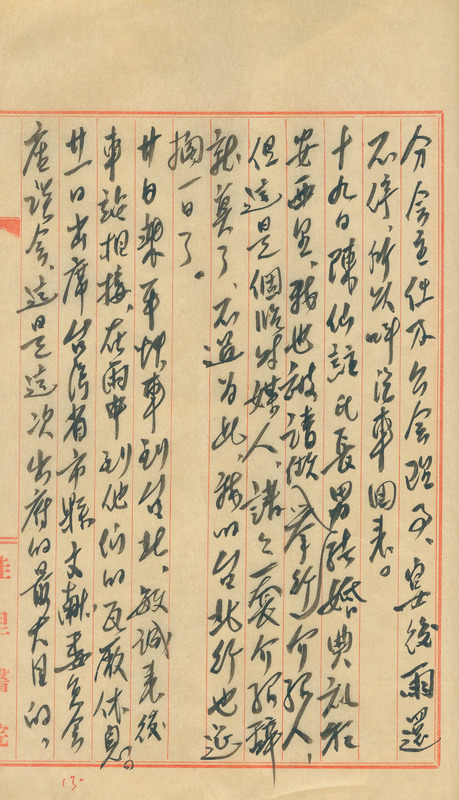 分會主任及公會理事、宴後雨還
不停、所以叫汽車回來。
十九日陳仙誼氏長男結婚典禮在
安西里、我也被請做(舉行)介紹人、
但這是個臨時媒人、讀了一套介紹辭
就算了、不過為此、我的台北行也延
擱一日了。
廿日乘平快車到台北、敏誠來後
車站相接、在雨中到他們的瓦厰休息。
廿一日出席台湾省市縣文献委員會
座談會、這是這次出府的最大目的、
佳里醫院
13